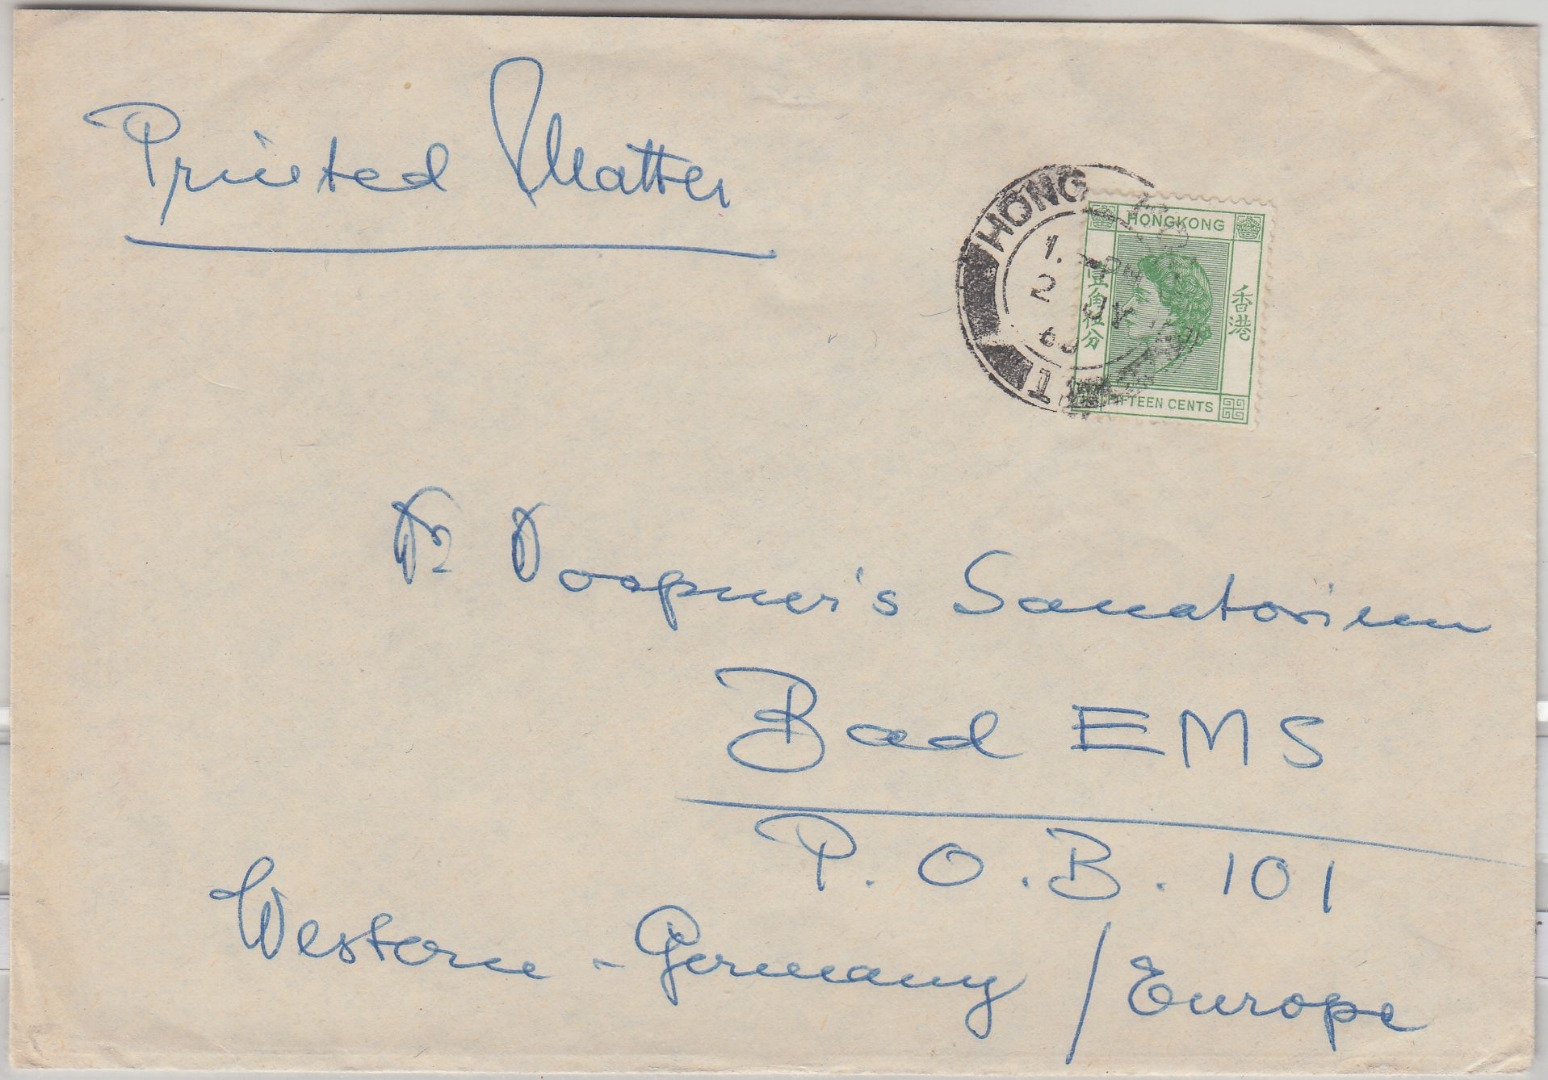 Printed Matter
HONG
HONGKONG
壹角伍分
香港
FIFTEEN CENTS
Dr Doepner's Sanatorium
Bad EMS
P. O. B. 101
Western - Germany / Europe